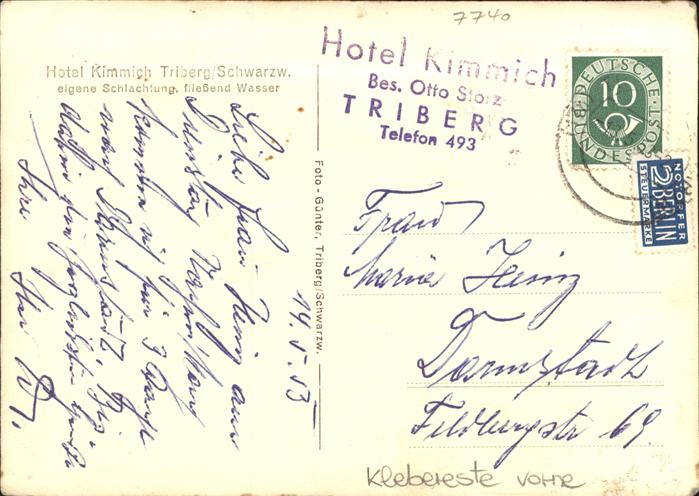 7740
Hotel Kimmich Triberg/Schwarzw.
eigene Schlachtung, fließend Wasser
Hotel Kimmich
Bes. Otto Storz
TRIBERG
Telefon 493
DEUTSCHE
10
BUNDESPOST
NOTOPFER
2 BERLIN
STEUERMARKE
Foto - Günter, Triberg/Schwarzw.
14.5.53
Liebe Frau Heinz am
Dienstag
kommen wir für 3 Tage
nach Darmstadt. Bis
dahin die herzlichsten Grüße
Ihre
Frau
Maria Heinz
Darmstadt
Feldbergstr 69
Klebereste vorne